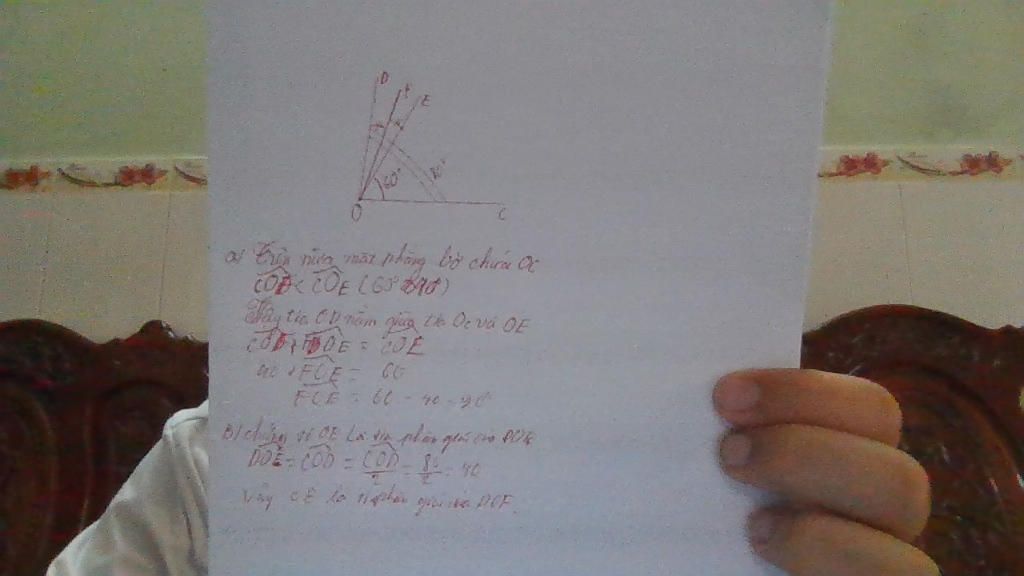 D F E
60°
O C
a) Trên nửa mặt phẳng bờ chứa OC
COD < COE (60°
Vậy tia OD nằm giữa tia OC và OE
COD + DOE = COE
40 + FOE = 60
FOE = 60 - 40 = 20°
B) OE Là tia phân giác của
DOE = COD = COD/2 = 80/2 = 40
Vậy OE là tia phân giác của DOF.